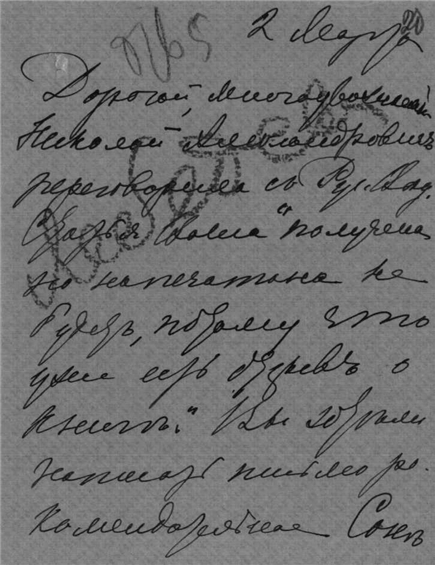 2 Марта 20
Дорогой, многоуважаемый
Николай Александровичъ
переговорила съ Рус. Вѣд.
Статья Ваша "получена
но напечатана не
будетъ, потому что
уже есть отзывъ о
книгѣ." Вы хотѣли
написать письмо ре-
комендательное